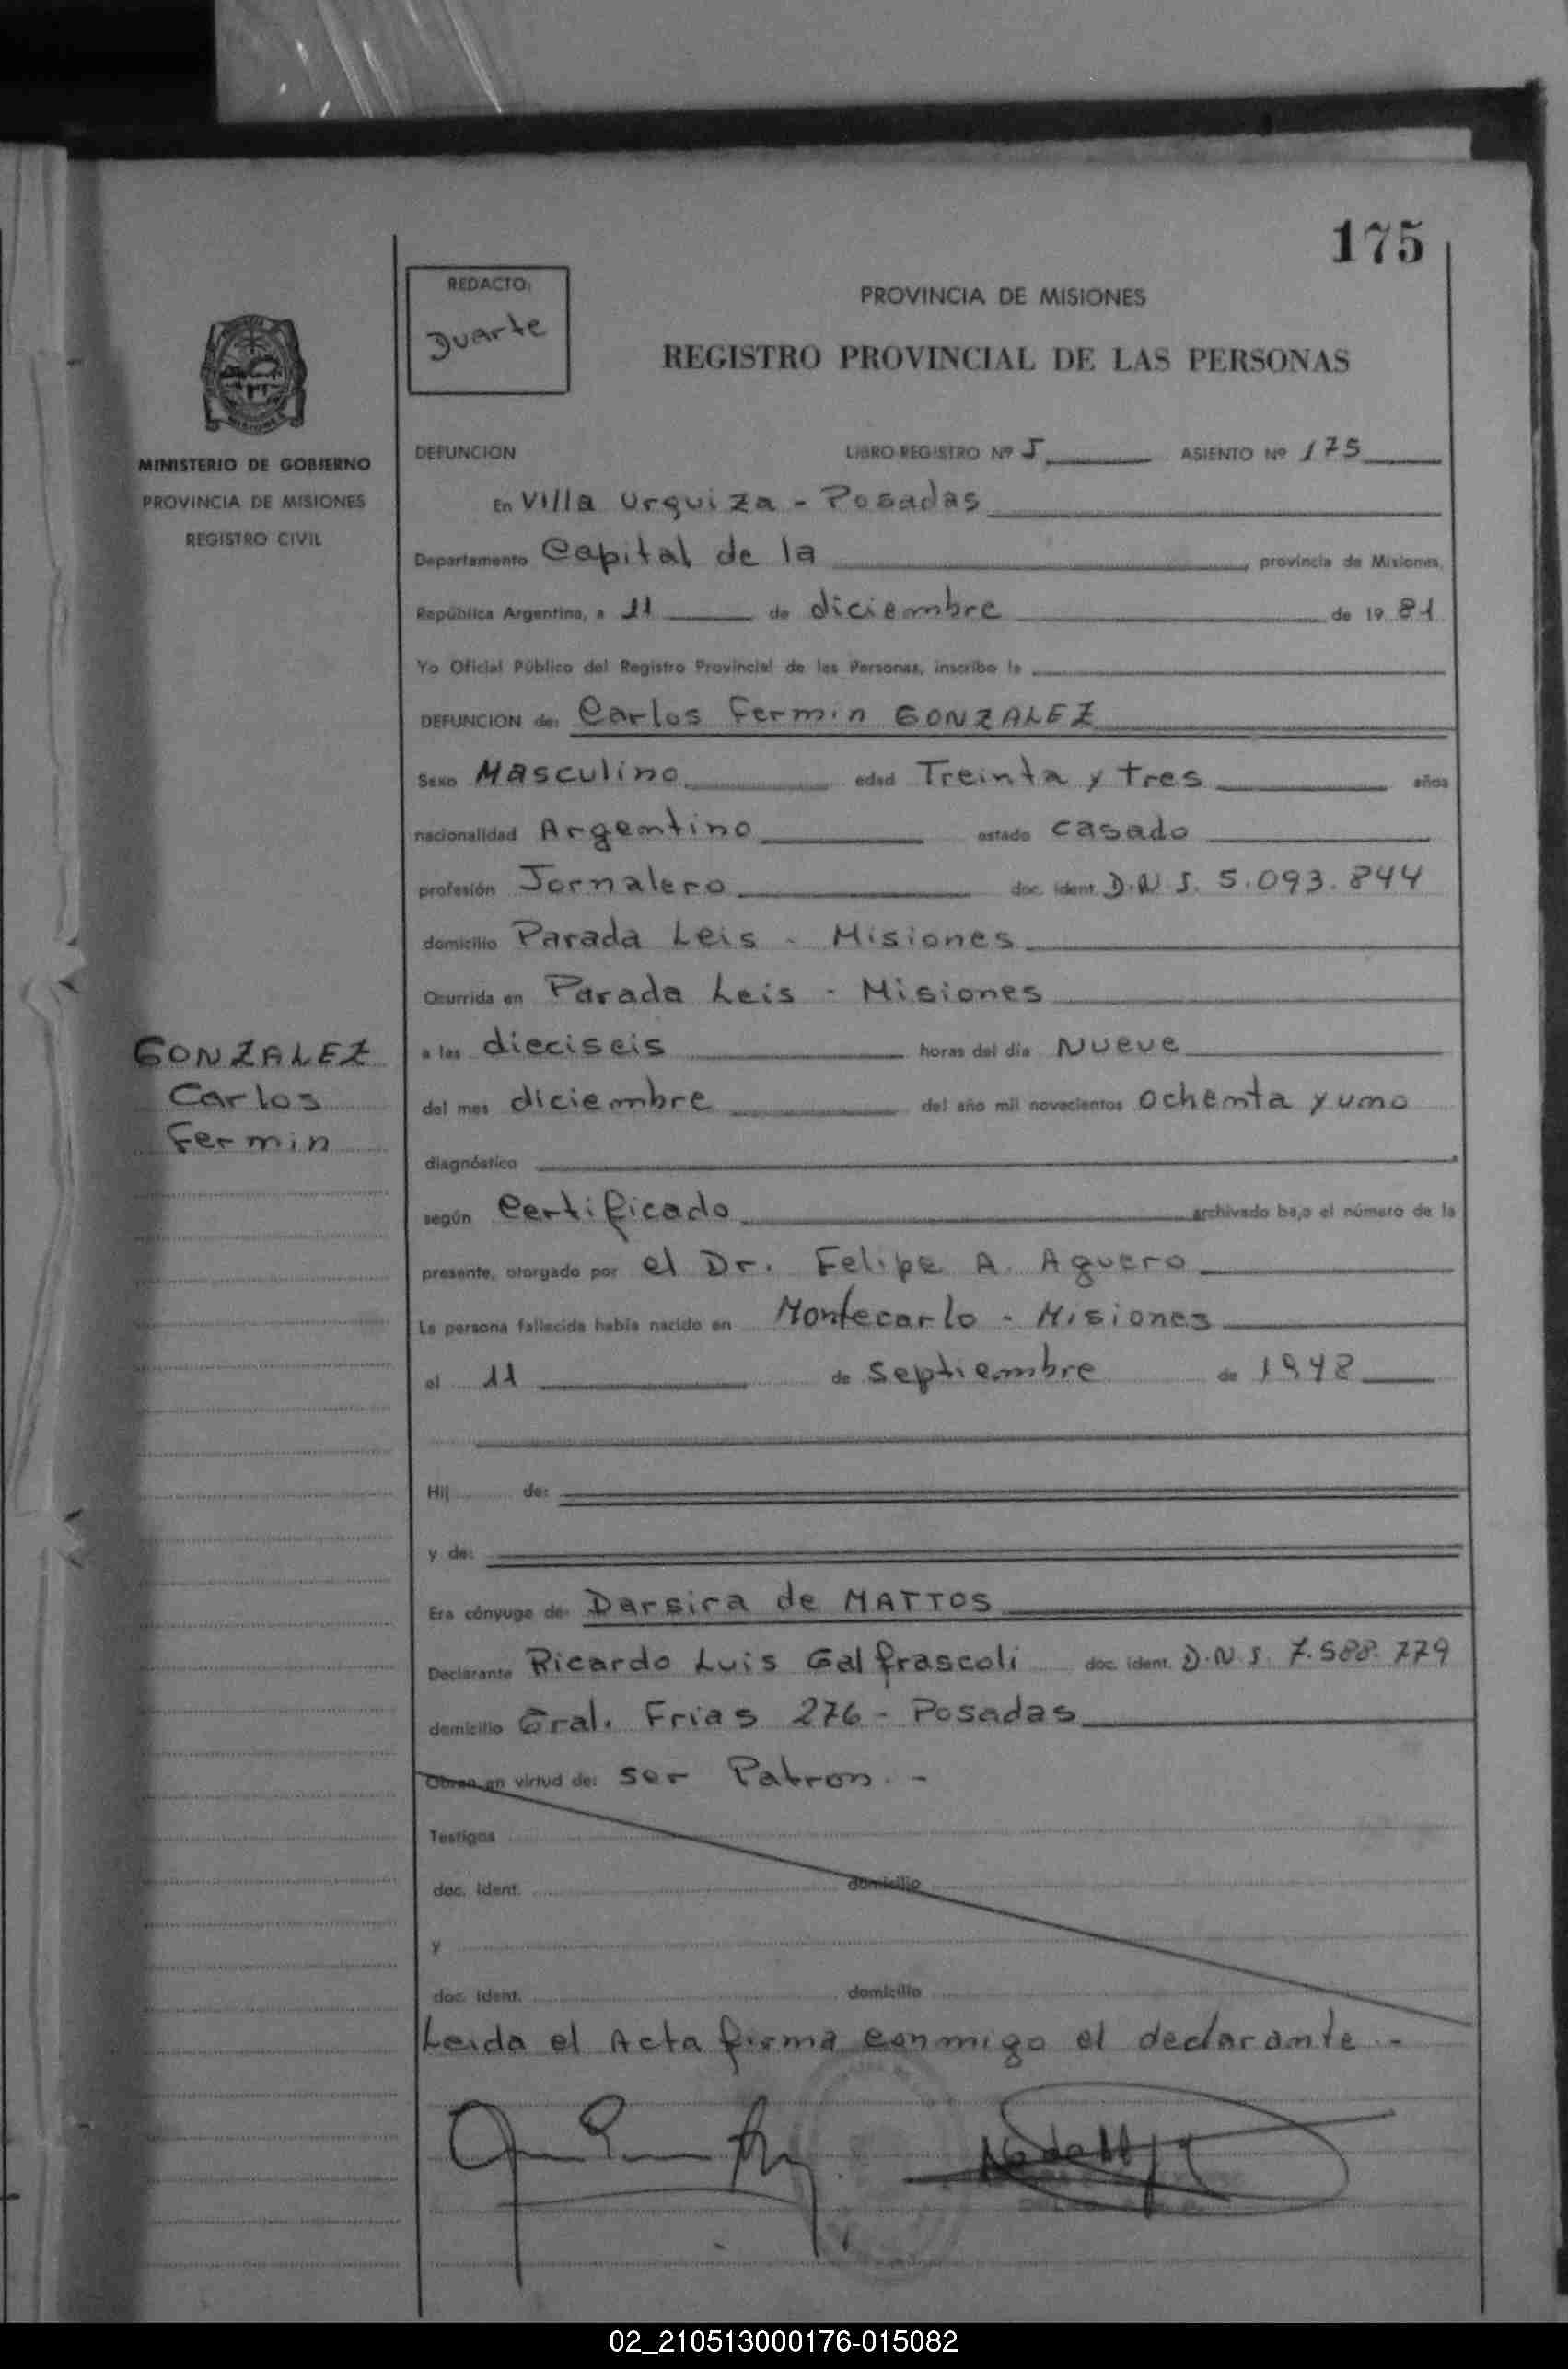 175
REDACTO:
Duarte
PROVINCIA DE MISIONES
REGISTRO PROVINCIAL DE LAS PERSONAS
MINISTERIO DE GOBIERNO
PROVINCIA DE MISIONES
REGISTRO CIVIL
DEFUNCION LIBRO REGISTRO Nº I ASIENTO Nº 175
En Villa Urquiza - Posadas
Departamento Capital de la provincia de Misiones,
República Argentina, a 11 de diciembre de 19 81
Yo Oficial Público del Registro Provincial de las Personas, inscribo la
DEFUNCION de: Carlos Fermin GONZALEZ
Sexo Masculino edad Treinta y tres años
nacionalidad Argentino estado casado
profesión Jornalero doc. ident. D.N.I. 5.093.844
domicilio Parada Leis - Misiones
Ocurrida en Parada Leis - Misiones
GONZALEZ
Carlos
Fermin
a las dieciseis horas del día Nueve
del mes diciembre del año mil novecientos ochenta y uno
diagnóstico
según Certificado archivado bajo el número de la
presente, otorgado por el Dr. Felipe A. Aguero
La persona fallecida había nacido en Montecarlo - Misiones
el 11 de septiembre de 1948
Hij de:
y de:
Era cónyuge de: Darsira de MATTOS
Declarante Ricardo Luis Galfrascoli doc. ident. D.N.I. 7.588.779
domicilio Gral. Frias 276 - Posadas
Obran en virtud de: ser Patron. -
Testigos
doc. ident. domicilio
y
doc. ident. domicilio
Leida el Acta firma conmigo el declarante. -
02_210513000176-015082